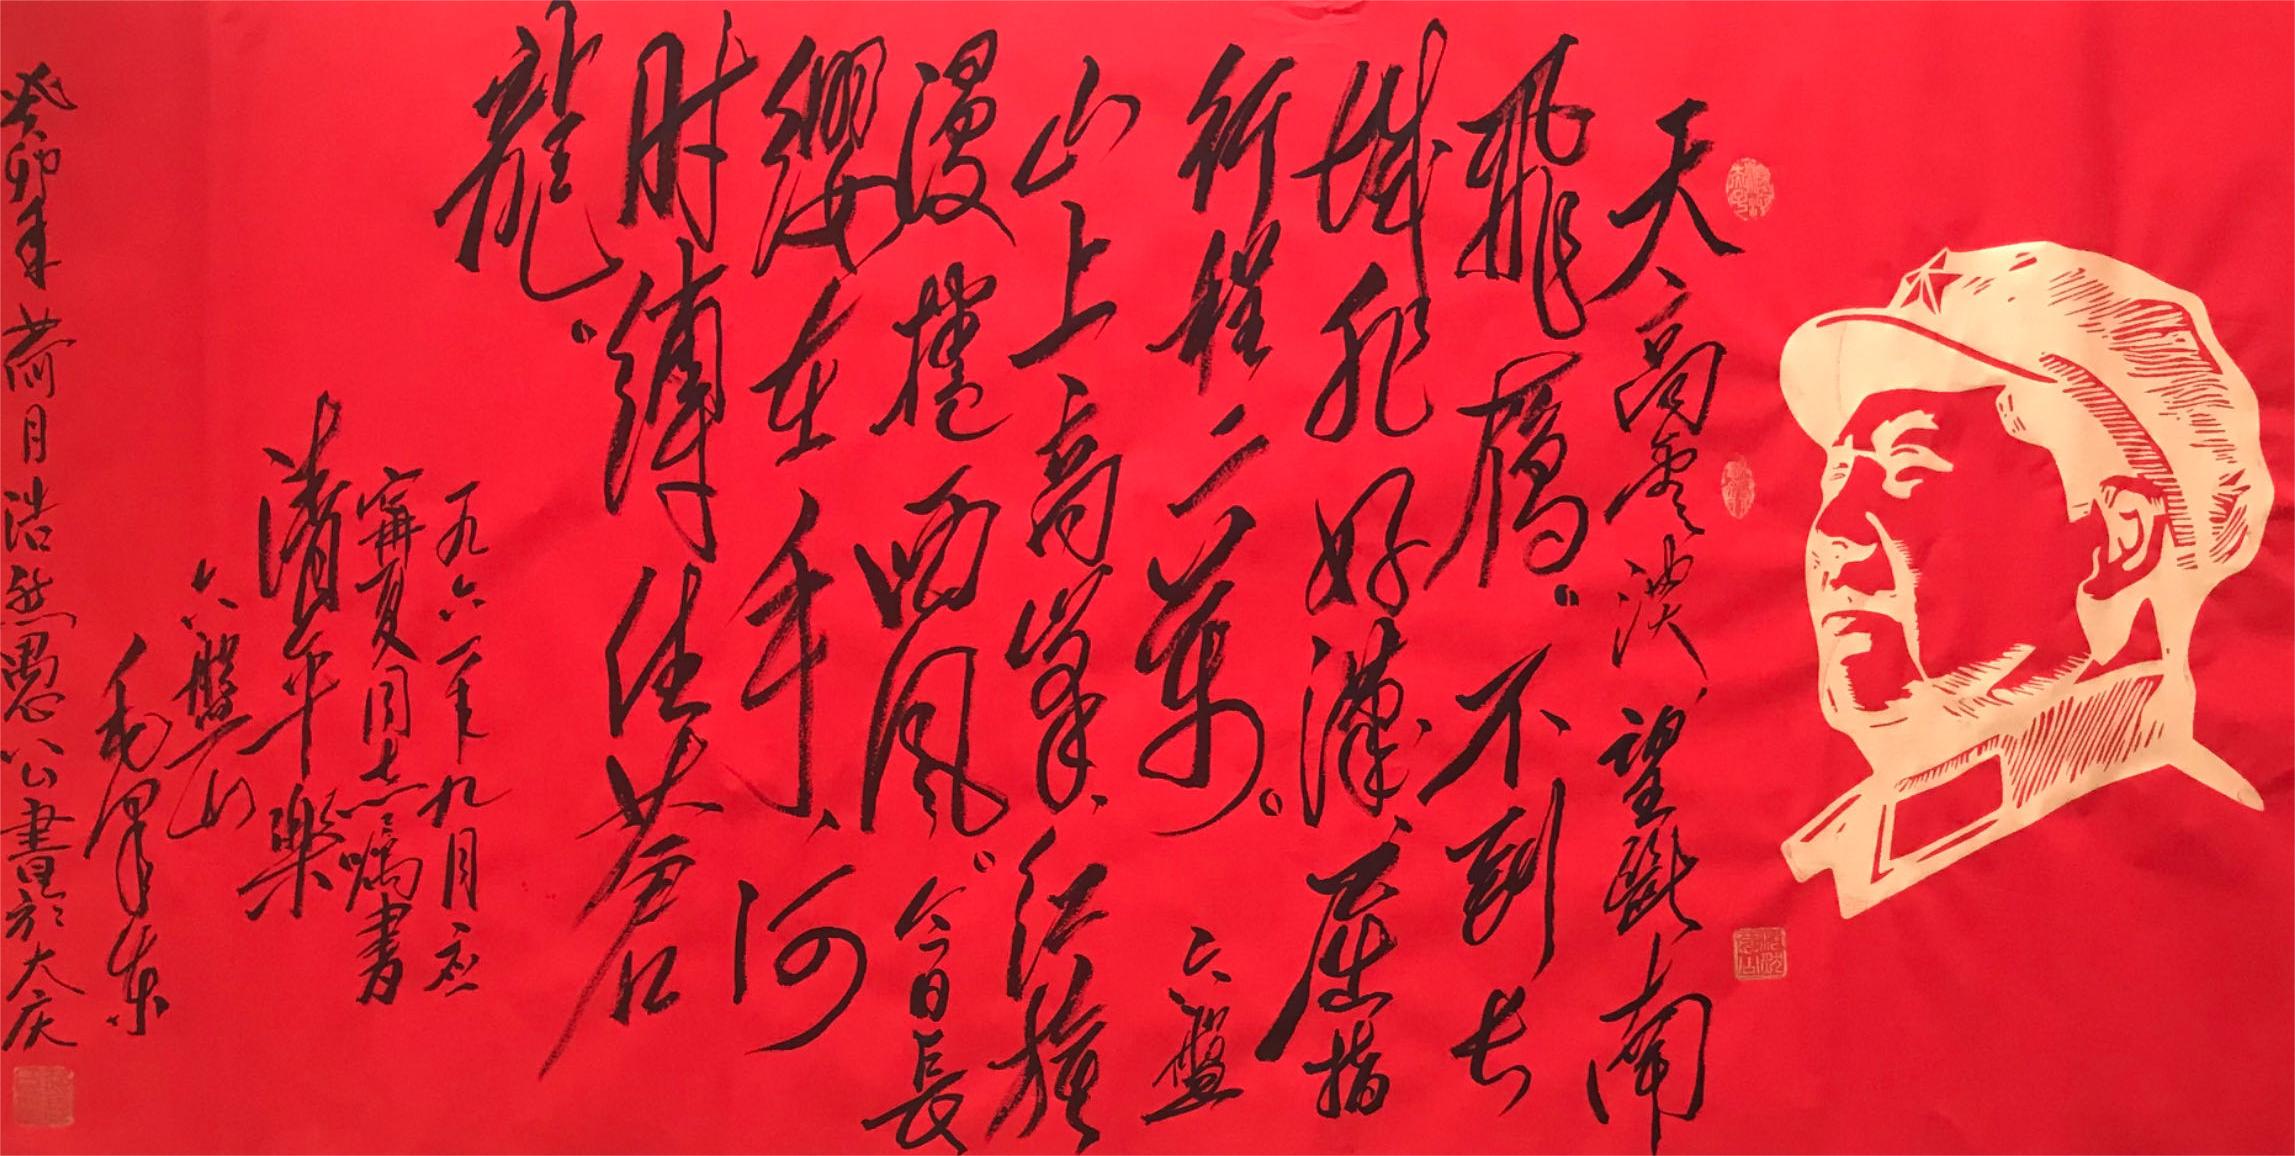 天、高雲淡、望斷南
飛雁。不到長
城非好漢、屈指
行程二萬。六盤
山上高峯、紅旗
漫捲西風。今日長
纓在手、何
时縛住蒼
龍。
一九六一年九月应
寧夏同志嘱書
清平樂
六盤山
毛澤東
癸卯年荷月浩然愚公書於大庆